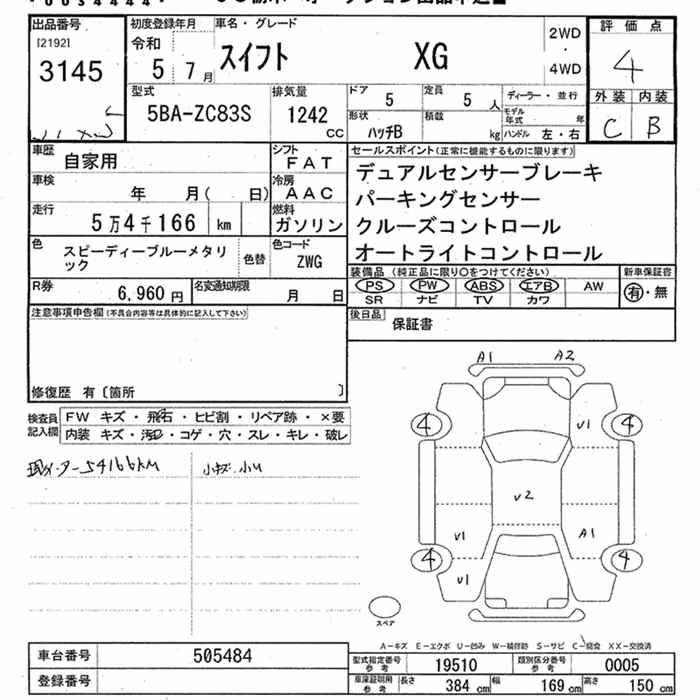 出品番号
[2192]
3145
初度登録年月
令和
5 7月
車名・グレード
スイフト XG
2WD
・
4WD
評価点
4
外装 内装
C B
型式
5BA-ZC83S
排気量
1242
CC
ドア
5
定員
5 人
ディーラー・並行
形状
ハッチB
積載
kg
モデル年式 年
ハンドル 左・右
車歴
自家用
シフト
FAT
車検
年 月( 日)
冷房
AAC
走行
5万4千166 km
燃料
ガソリン
色
スピーディーブルーメタリック
色替
色コード
ZWG
R券
6,960円
名変通知期限
月 日
セールスポイント(正常に機能するものに限ります)
デュアルセンサーブレーキ
パーキングセンサー
クルーズコントロール
オートライトコントロール
装備品 (純正品に限り○をつけてください)
PS PW ABS エアB AW
SR ナビ TV カワ
新車保証書
有・無
後日品
保証書
注意事項申告欄(不具合内容等は具体的に記入して下さい)
修復歴 有〔箇所 〕
検査員記入欄
FW キズ・飛石・ヒビ割・リペア跡・×要
内装 キズ・汚れ・コゲ・穴・スレ・キレ・破レ
現メーター54166KM
小キズ.小U
A1 A2
4 4
U1
U2
U1 A1
4 4
U1
スペア
A-キズ E-エクボ U-凹み W-補修跡 S-サビ C-腐食 XX-交換済
車台番号
505484
登録番号
型式指定番号
参考
19510
類別区分番号
参考
0005
車庫証明用
参考
長さ
384 cm
幅
169 cm
高さ
150 cm